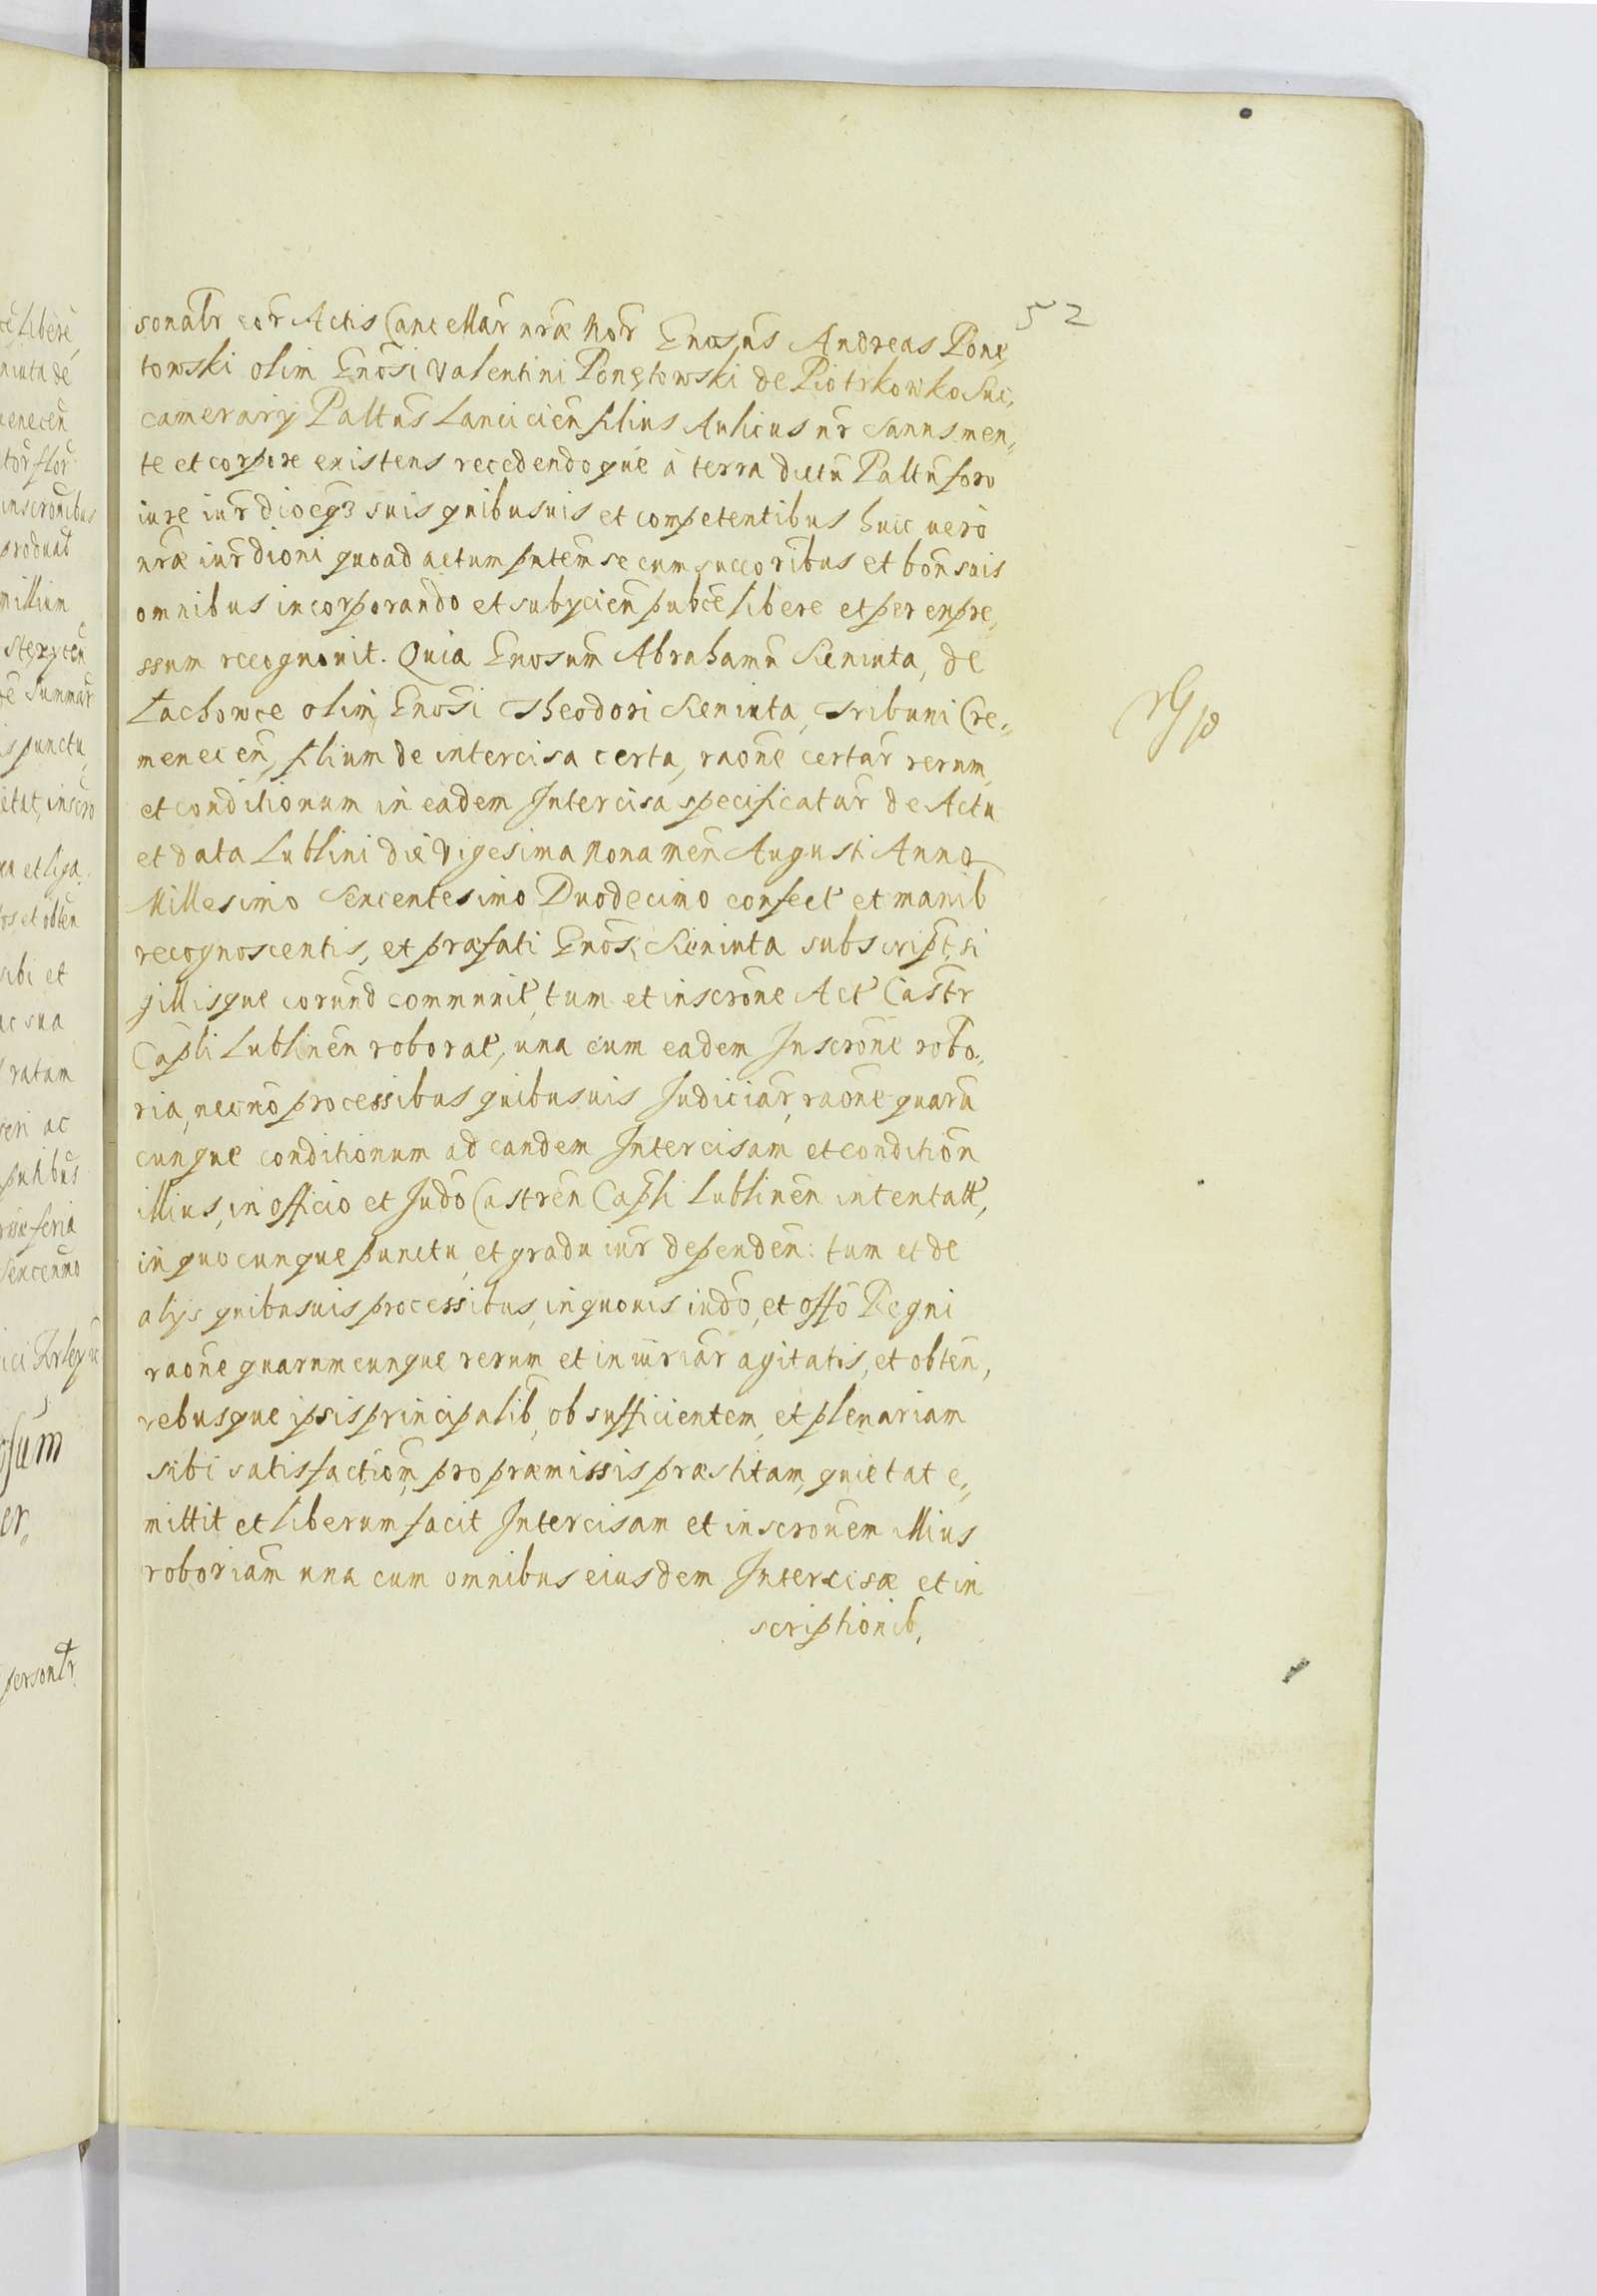 52
sonalr cor Actis Cancellar nræ Mor Gnosus Andreas Pone,
towski olim Gnosi Valentini Ponętowski de Piotrkowko Suc,
camerarij Paltus Lanciciен filius Aulicus nr Sanus men,,
te et corpore existens recedendoque à terra dictu Paltu foro
iure iurdioeq3 suis quibusuis et competentibus huic uero
nræ iurdioni quoad actum pntem se cum succoribus et bon suis
omnibus incorporando et subycien pubce libere et per expre,
ssum recognouit. Quia Gnosum Abrahamu Sieniuta, de
Lachowce olim Gnosi Theodori Sieniuta, Tribuni Cre,,
menecen, filium de intercisa certa, raone certar rerum,
et conditionum in eadem Intercisa specificatar de Actu
et data Lublini die Vigesima Nona Men Augusti Anno
Millesimo Sexcentesimo Duodecimo confect et manib
recognoscentis, et præfati Gnosi Sieniuta subscript, si
gillisque eorund communit, tum et inscrone Act Castr
Capli Lublinen roborat, una cum eadem Inscrone robo,,
ria, necno processibus quibusuis Judiciar, raone quaru
cunque conditionum ad eandem Intercisam et condition
illius, in officio et Judo Castren Capli Lublinen intentatt,
in quocunque punctu, et gradu iur dependen: tum et de
alijs quibusuis processibus, in quouis iudo, et offo Regni
raone quarumcunque rerum et iniuriar agitatis, et obten,
rebusque ipsis principalib, ob sufficientem, et plenariam
sibi satisfaction, pro præmissis præstitam, quietat e,,
mittit et liberum facit Intercisam et inscronem illius
roboriam una cum omnibus eiusdem Intercisæ et in
scriptionib,